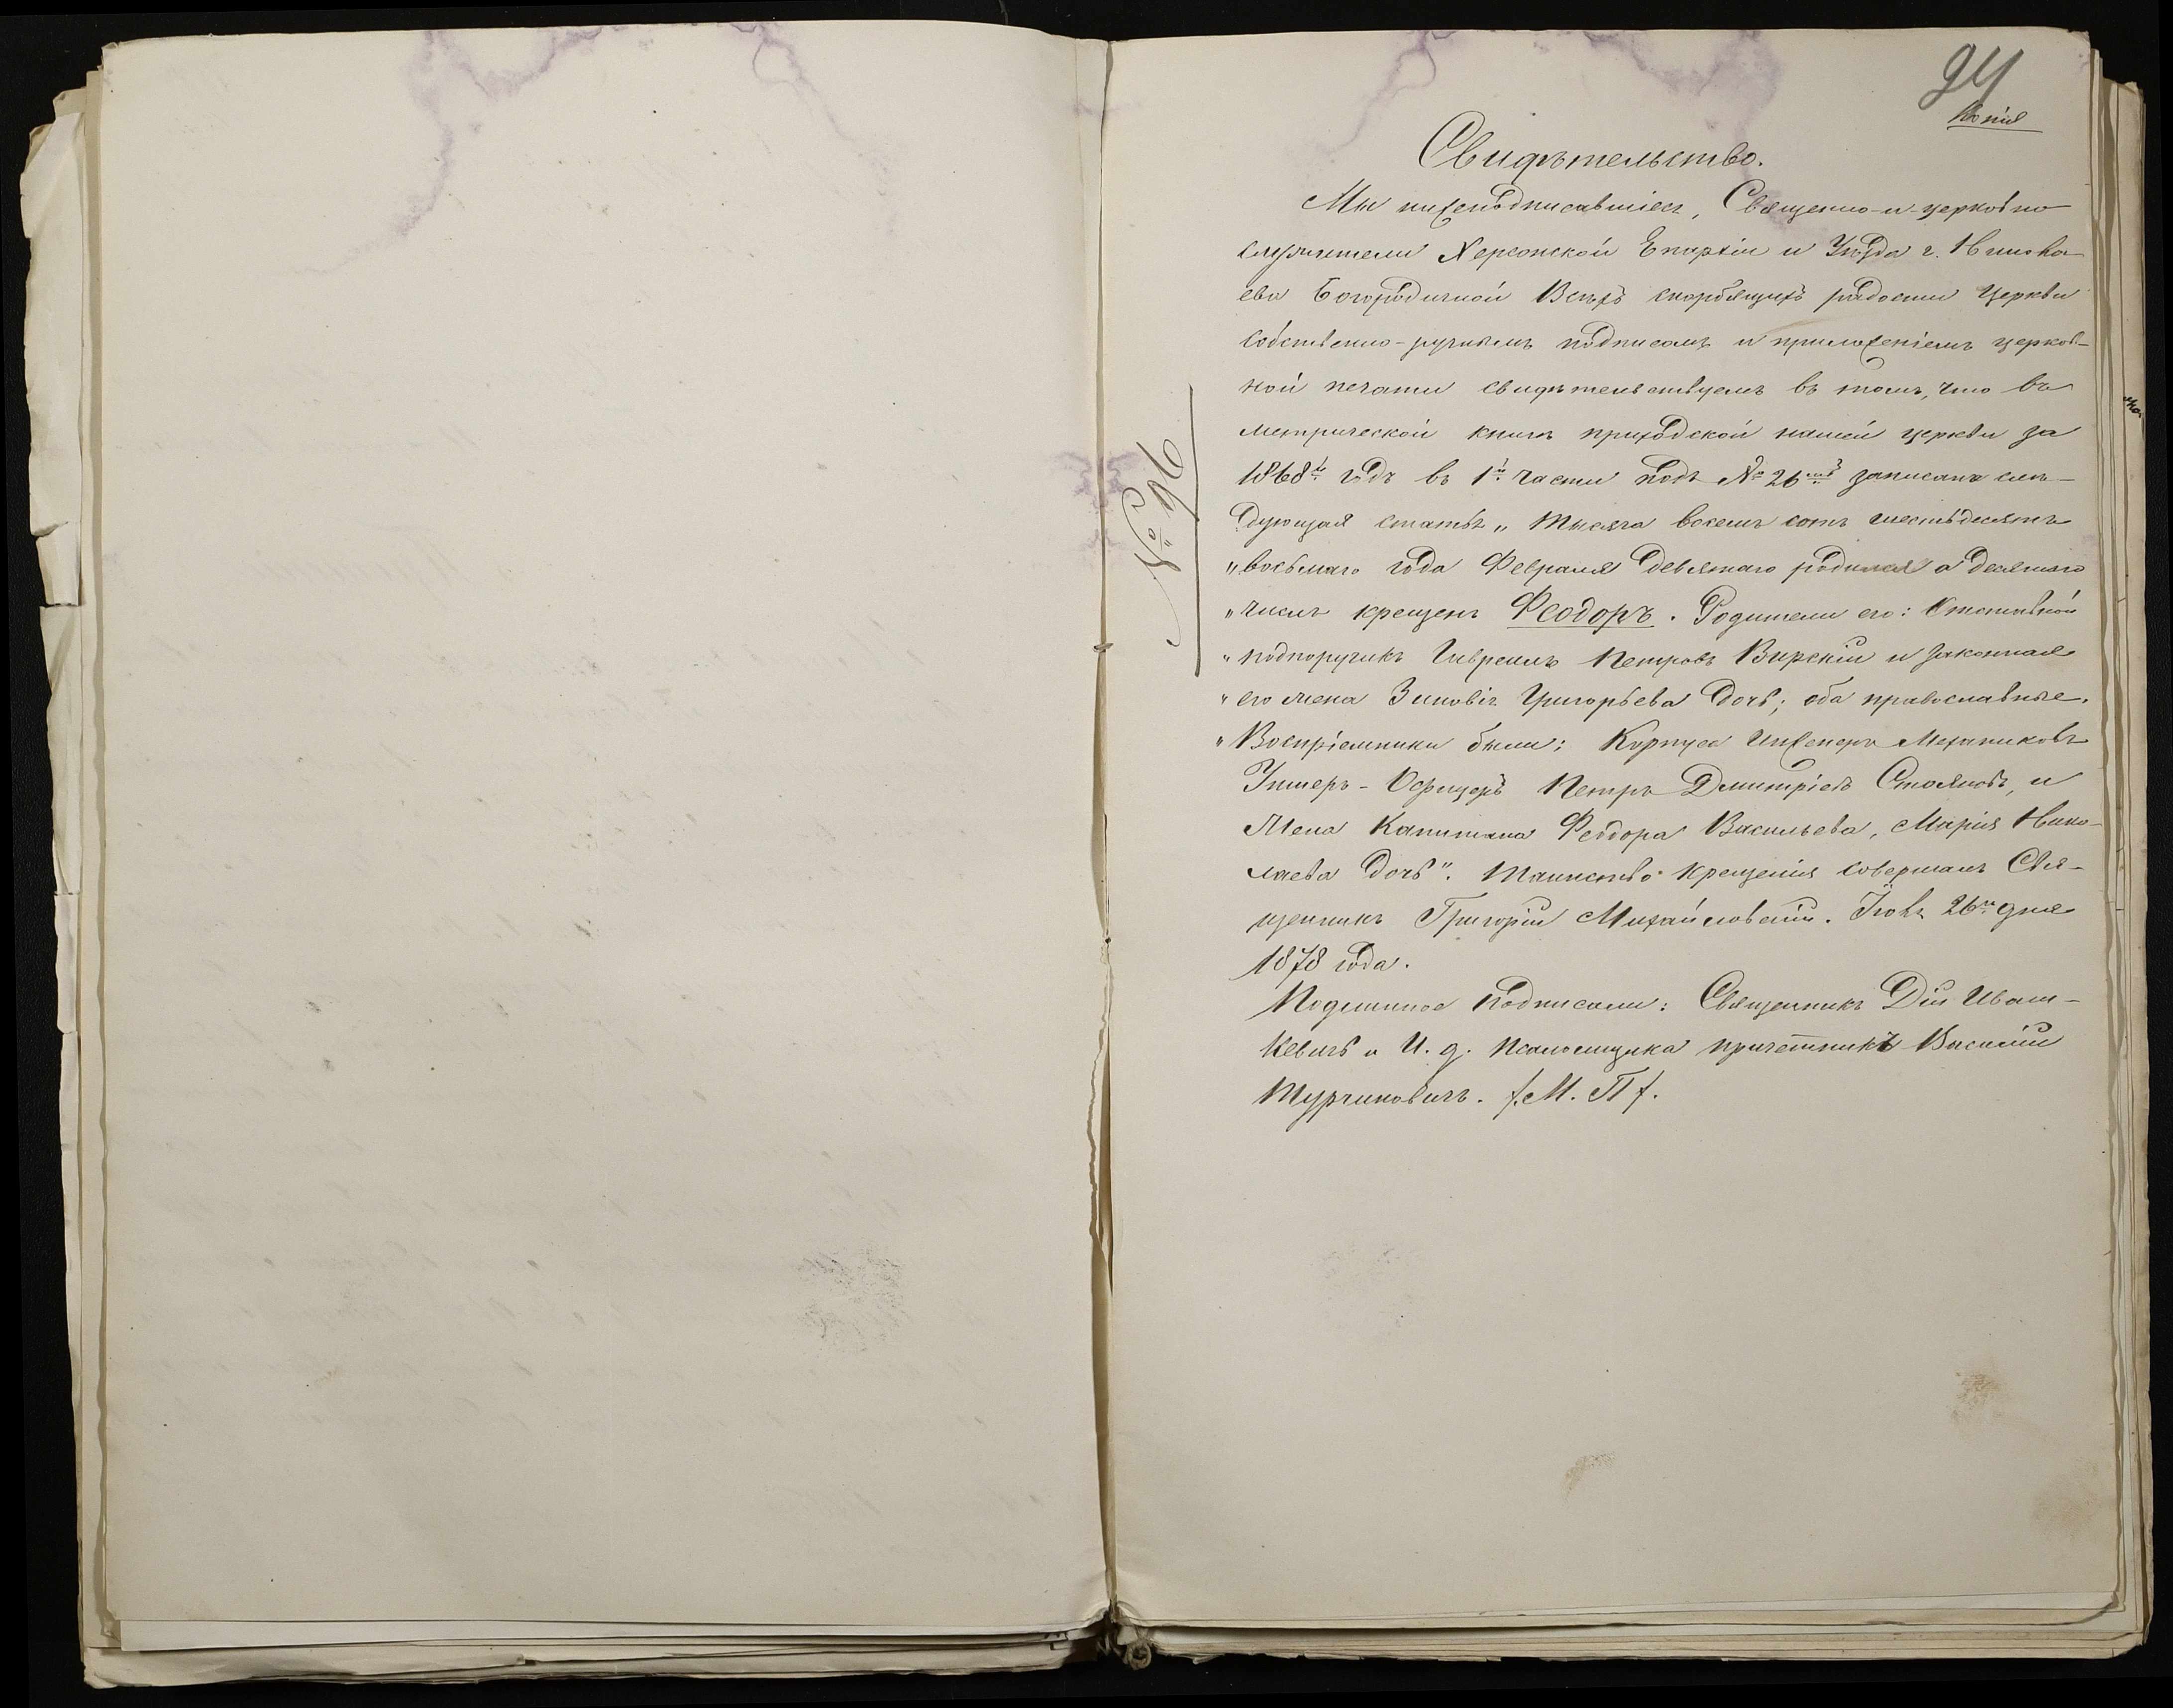 94
Копія
Свидѣтельство.
Мы нижеподписавшіеся, Священно-и-церковно
служители Херсонской Епархіи и Уѣзда г. Никола-
ева Богородичной Всѣхъ скорбящихъ радости Церкви
собственно-ручнымъ подписомъ и приложеніемъ церков-
ной печати свидѣтельствуемъ въ томъ, что въ
метрической книгѣ приходской нашей церкви за
1868й годъ въ 1й части подъ № 26мъ записана слѣ-
дующая статья „Тысяча восемь сотъ шестьдесятъ
„восьмаго года Февраля девятаго родился а десятаго
„числа крещенъ Феодоръ. Родители его: Отставной
„подпоручикъ Гавріилъ Петровъ Вирскій и законная
„его жена Зиновія Григорьева дочь; оба православные.
„Воспріемники были: Корпуса Инженеръ Механиковъ
Унтеръ-Офицеръ Петръ Димитріевъ Стояновъ, и
Жена Капитана Феодора Васильева, Марія Нико-
лаева дочь". Таинство крещенія совершалъ Свя-
щенникъ Григорій Михайловскій. Іюля 26го дня
1878 года.
Подлинное подписали: Священникъ Дій Иваш-
кевичъ и И. д. Псаломщика причетникъ Василій
Турчиновичъ. /М. П/.
№ 96